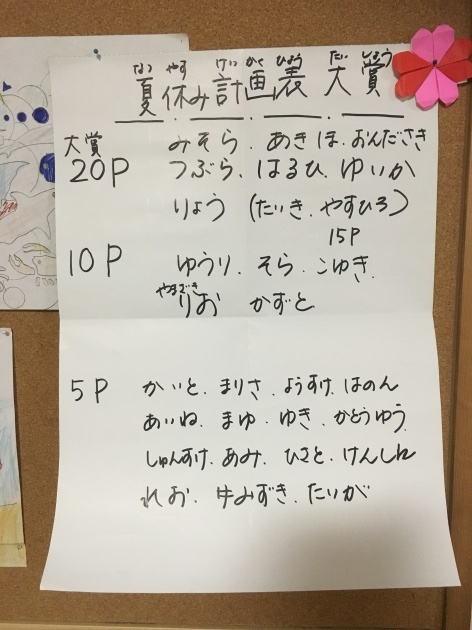 なつ やす けい かく ひょう たい しょう
夏休み計画表 大賞
大賞 みそら、あきほ、おんださき
20P つぶら、はるひ、ゆいか
りょう (たいき、やすひろ)
15P
10P ゆうり、そら、こゆき、
りお かずと
5P かいと、まりさ、ようすけ、はのん
あいね、まゆ、ゆき、かとうゆう
しゅんすけ、あみ、ひさと、けんしん
れお、牛みずき、たいが